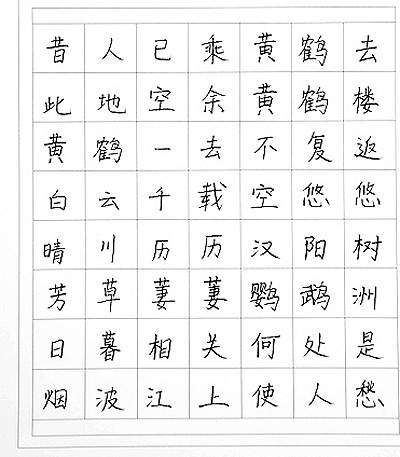 昔人已乘黄鹤去
此地空余黄鹤楼
黄鹤一去不复返
白云千载空悠悠
晴川历历汉阳树
芳草萋萋鹦鹉洲
日暮相关何处是
烟波江上使人愁